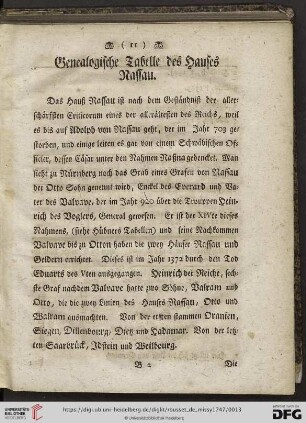 ( 11 )
Genealogische Tabelle des Hauses
Nassau.
Das Hauß Nassau ist nach dem Geständniß der aller-
schärffsten Criticorum eines der allerältesten des Reichs, weil
es bis auf Adolph von Nassau geht, der im Jahr 703 ge-
storben, und einige leiten es gar von einem Schwäbischen Of-
ficier, dessen Cäsar unter den Nahmen Nasua gedencket. Man
sieht zu Nürnberg noch das Grab eines Grafen von Nassau
der Otto Sohn genennt wird, Enckel des Everard und Va-
ter des Valrave, der im Jahr 920 über die Trouppen Hein-
rich des Voglers, General gewesen. Er ist der XIVte dieses
Nahmens, (siehe Hübners Tabellen) und seine Nachkommen
Valrave bis zu Otton haben die zwey Häuser Nassau und
Geldern errichtet. Dieses ist im Jahr 1372 durch den Tod
Eduards des Vten ausgegangen. Heinrich der Reiche, sechs-
ste Graf nachdem Valrave hatte zwo Söhne, Valram und
Otto, die die zwey Linien des Hauses Nassau, Otto und
Walram ausmachten. Von der ersten stammen Oranien,
Siegen, Dillenbourg, Dietz und Hadamar. Von der letz-
ten Saarbrück, Idstein und Weilbourg.
B 2 Die
http://digi.ub.uni-heidelberg.de/diglit/rousset_de_missy1747/0013
UNIVERSITÄTS-
BIBLIOTHEK
HEIDELBERG
© Universitätsbibliothek Heidelberg
gefördert durch die
DFG